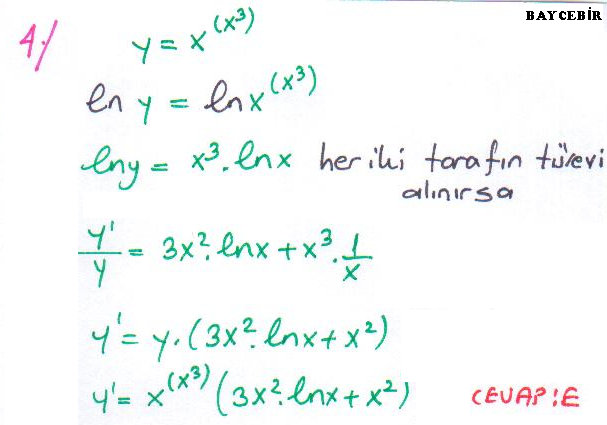 BAYCEBİR
4-/ y = x^(x³)
ln y = ln x^(x³)
lny = x³.lnx her iki tarafın türevi
alınırsa
y'/y = 3x².lnx + x³.1/x
y' = y.(3x².lnx + x²)
y' = x^(x³)(3x².lnx + x²) CEVAP:E